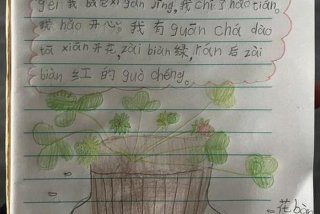 gěi 我 jìng,我 chī 了 hǎo tián。
我 hǎo 开心。我 有 guān chá dào
它 xiān 开花, zài biàn 绿, rán 后 zài
biàn 红 的 guò chéng。
花